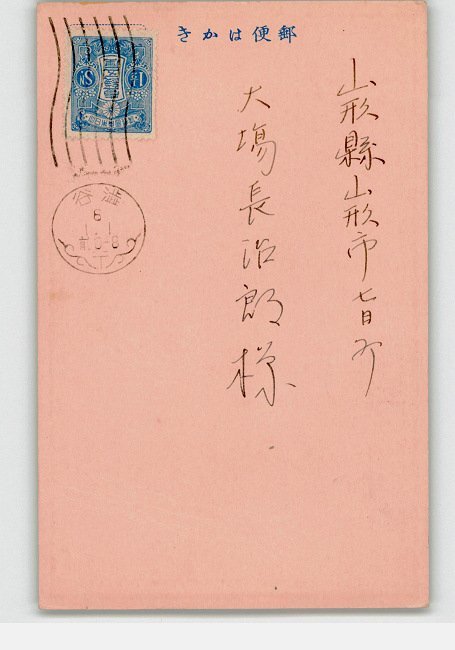 郵便はかき
山形縣山形市七日町
大場長治郎様
澁谷
6
1.1
前6-8